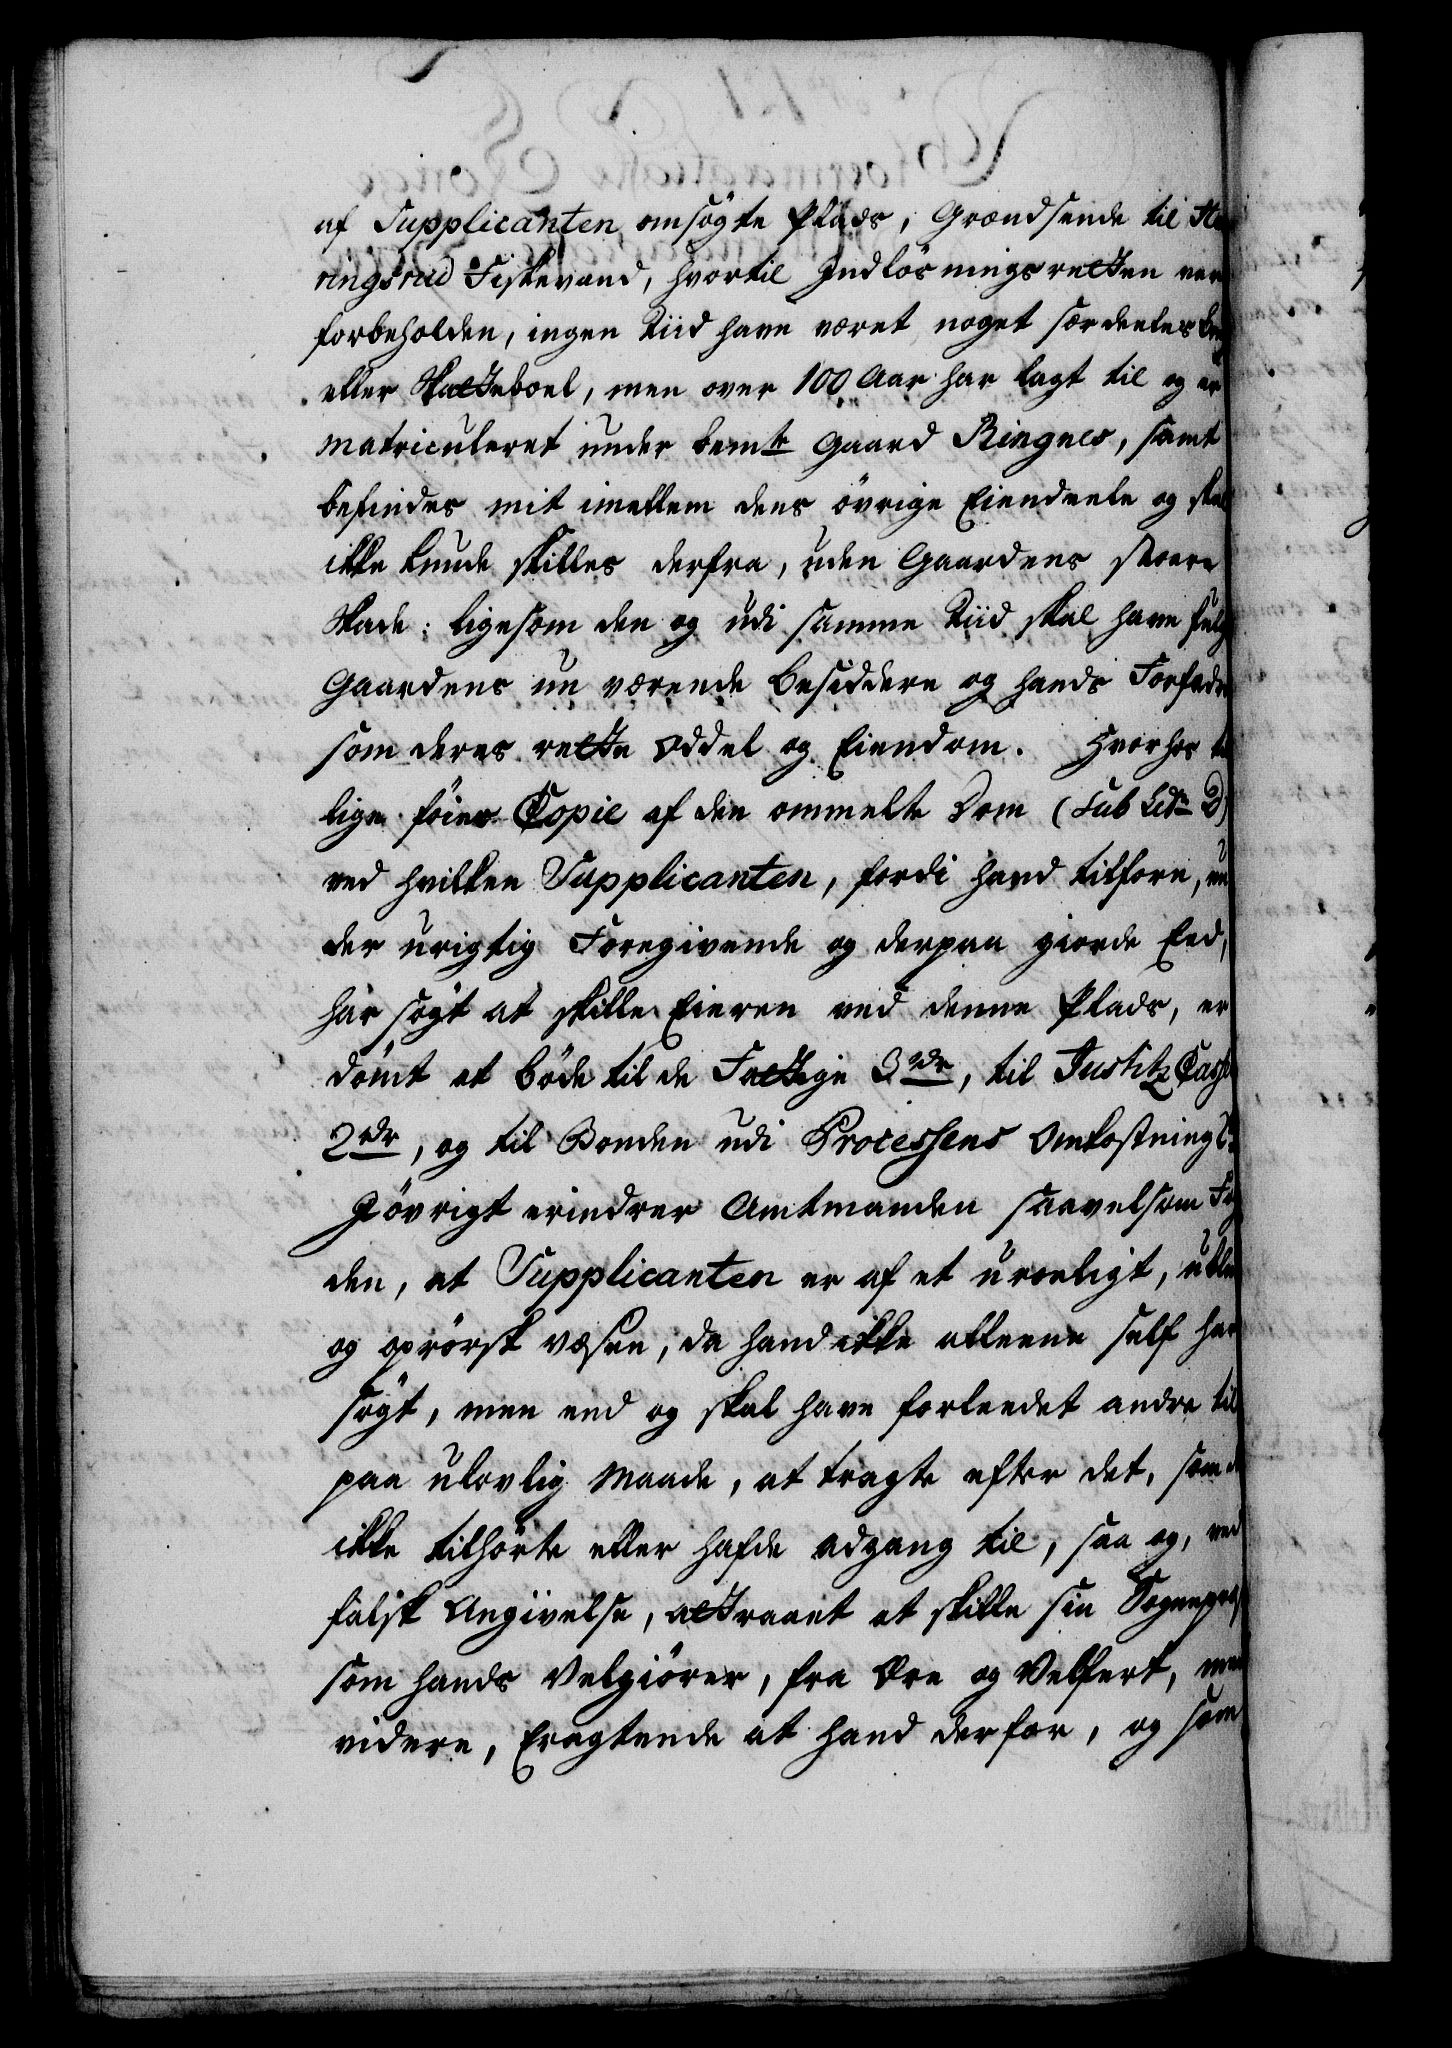 af Supplicanten ansøgte Plads, Grændsende til
ringsrud Fiskevand, hvortil Indlösningsretten var
forbeholden, ingen Tiid have været noget særdeeles
eller Skatteboel, men over 100 Aar har lagt til og er
matriculeret under bemte Gaard Ringnes, samt
befindes mit imellem dens övrige Eiendeele og skal
ikke kunde skilles derfra, uden Gaardens störe
Skade; ligesom den og udi samme Tiid skal have fulgt
Gaardens nu værende Besiddere og hands Forfædre
som deres rette Oddel og Eiendom. Hvorhos
lige föies Copie af den ommelte Dom (Sub Litr D)
ved hvilken Supplicanten, fordi hand tilforn, un
der urigtig Foregivende og derpaa giorde Eed,
har sögt at skille Eieren ved denne Plads, er
dömt at böde til de Fattige 3 rdr, til Justitz Cassen
2 rdr, og til Bonden udi Processens Omkostning
Jövrigt erindrer Amtmanden saavelsom Fog
den, at Supplicanten er af et uroeligt,
og oprörsk væsen, da hand ikke alleene self har
sögt, men end og skal have forleedet andre til
paa ulovlig Maade, at tragte efter det, som
ikke tilhörte eller hafde adgang til, saa og, ved
falsk Angivelse, attraaet at skille sin Sognepræst
som hands Velgiörer, fra Ære og Velfert, med
videre, Eragtende at hand derfor, og som